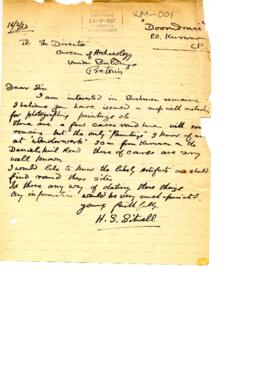 XM-001
"Doorndraai"
P.O. Kuruman
C.P.
16/2/37
24-2-1937
To The Director
Bureau of Archaeology
Union Buildings
Pretoria
Dear Sir
I am interested in Bushmen remains
I believe you have issued a map with
for photographing paintings etc
There are a few caves round here, with some
remains but the only "Paintings" I know of are
at "Wonderwerk" from Kuruman on the
Danielskuil Road these of course are very
well known
I would like to know the likely artifacts one should
find round these sites
Is there any way of dating these things
Any information would be very much appreciated.
yours faithfully
H. S. Sitwell